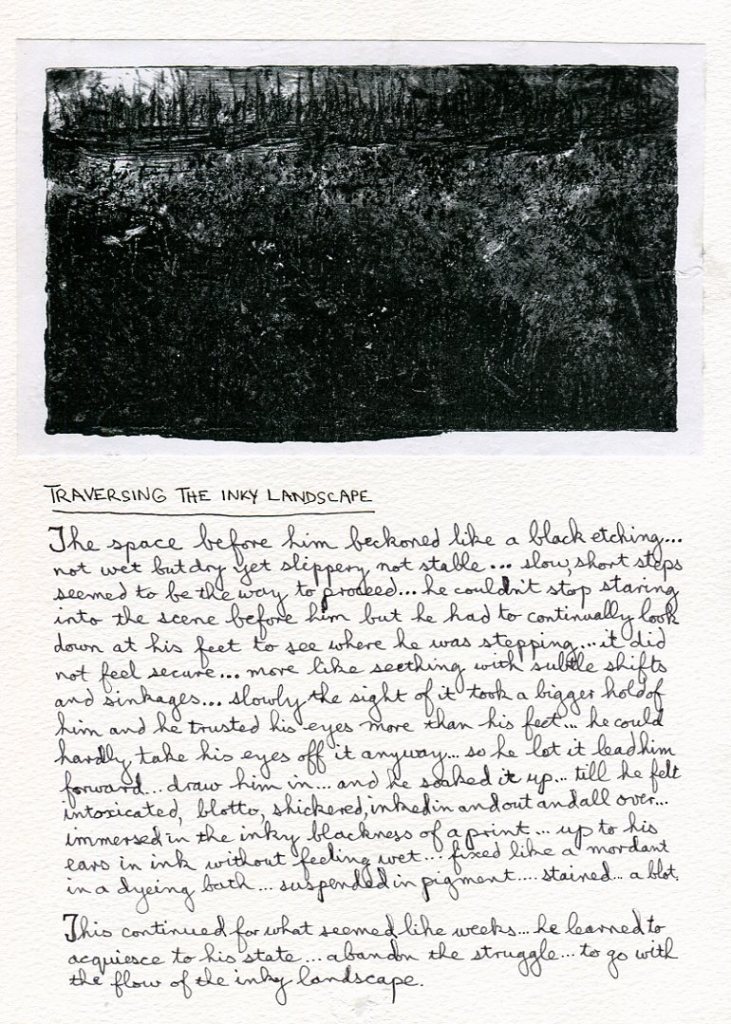 TRAVERSING THE INKY LANDSCAPE
The space before him beckoned like a black etching...
not wet but dry yet slippery not stable... slow, short steps
seemed to be the way to proceed... he couldn't stop staring
into the scene before him but he had to continually look
down at his feet to see where he was stepping... it did
not feel secure... more like seething with subtle shifts
and sinkages... slowly the sight of it took a bigger hold of
him and he trusted his eyes more than his feet... he could
hardly take his eyes off it anyway... so he let it lead him
forward... draw him in... and he soaked it up... till he felt
intoxicated, blotto, shickered, inked in and out and all over...
immersed in the inky blackness of a print... up to his
ears in ink without feeling wet... fixed like a mordant
in a dyeing bath... suspended in pigment.... stained... a blot.
This continued for what seemed like weeks... he learned to
acquiesce to his state... abandon the struggle... to go with
the flow of the inky landscape.